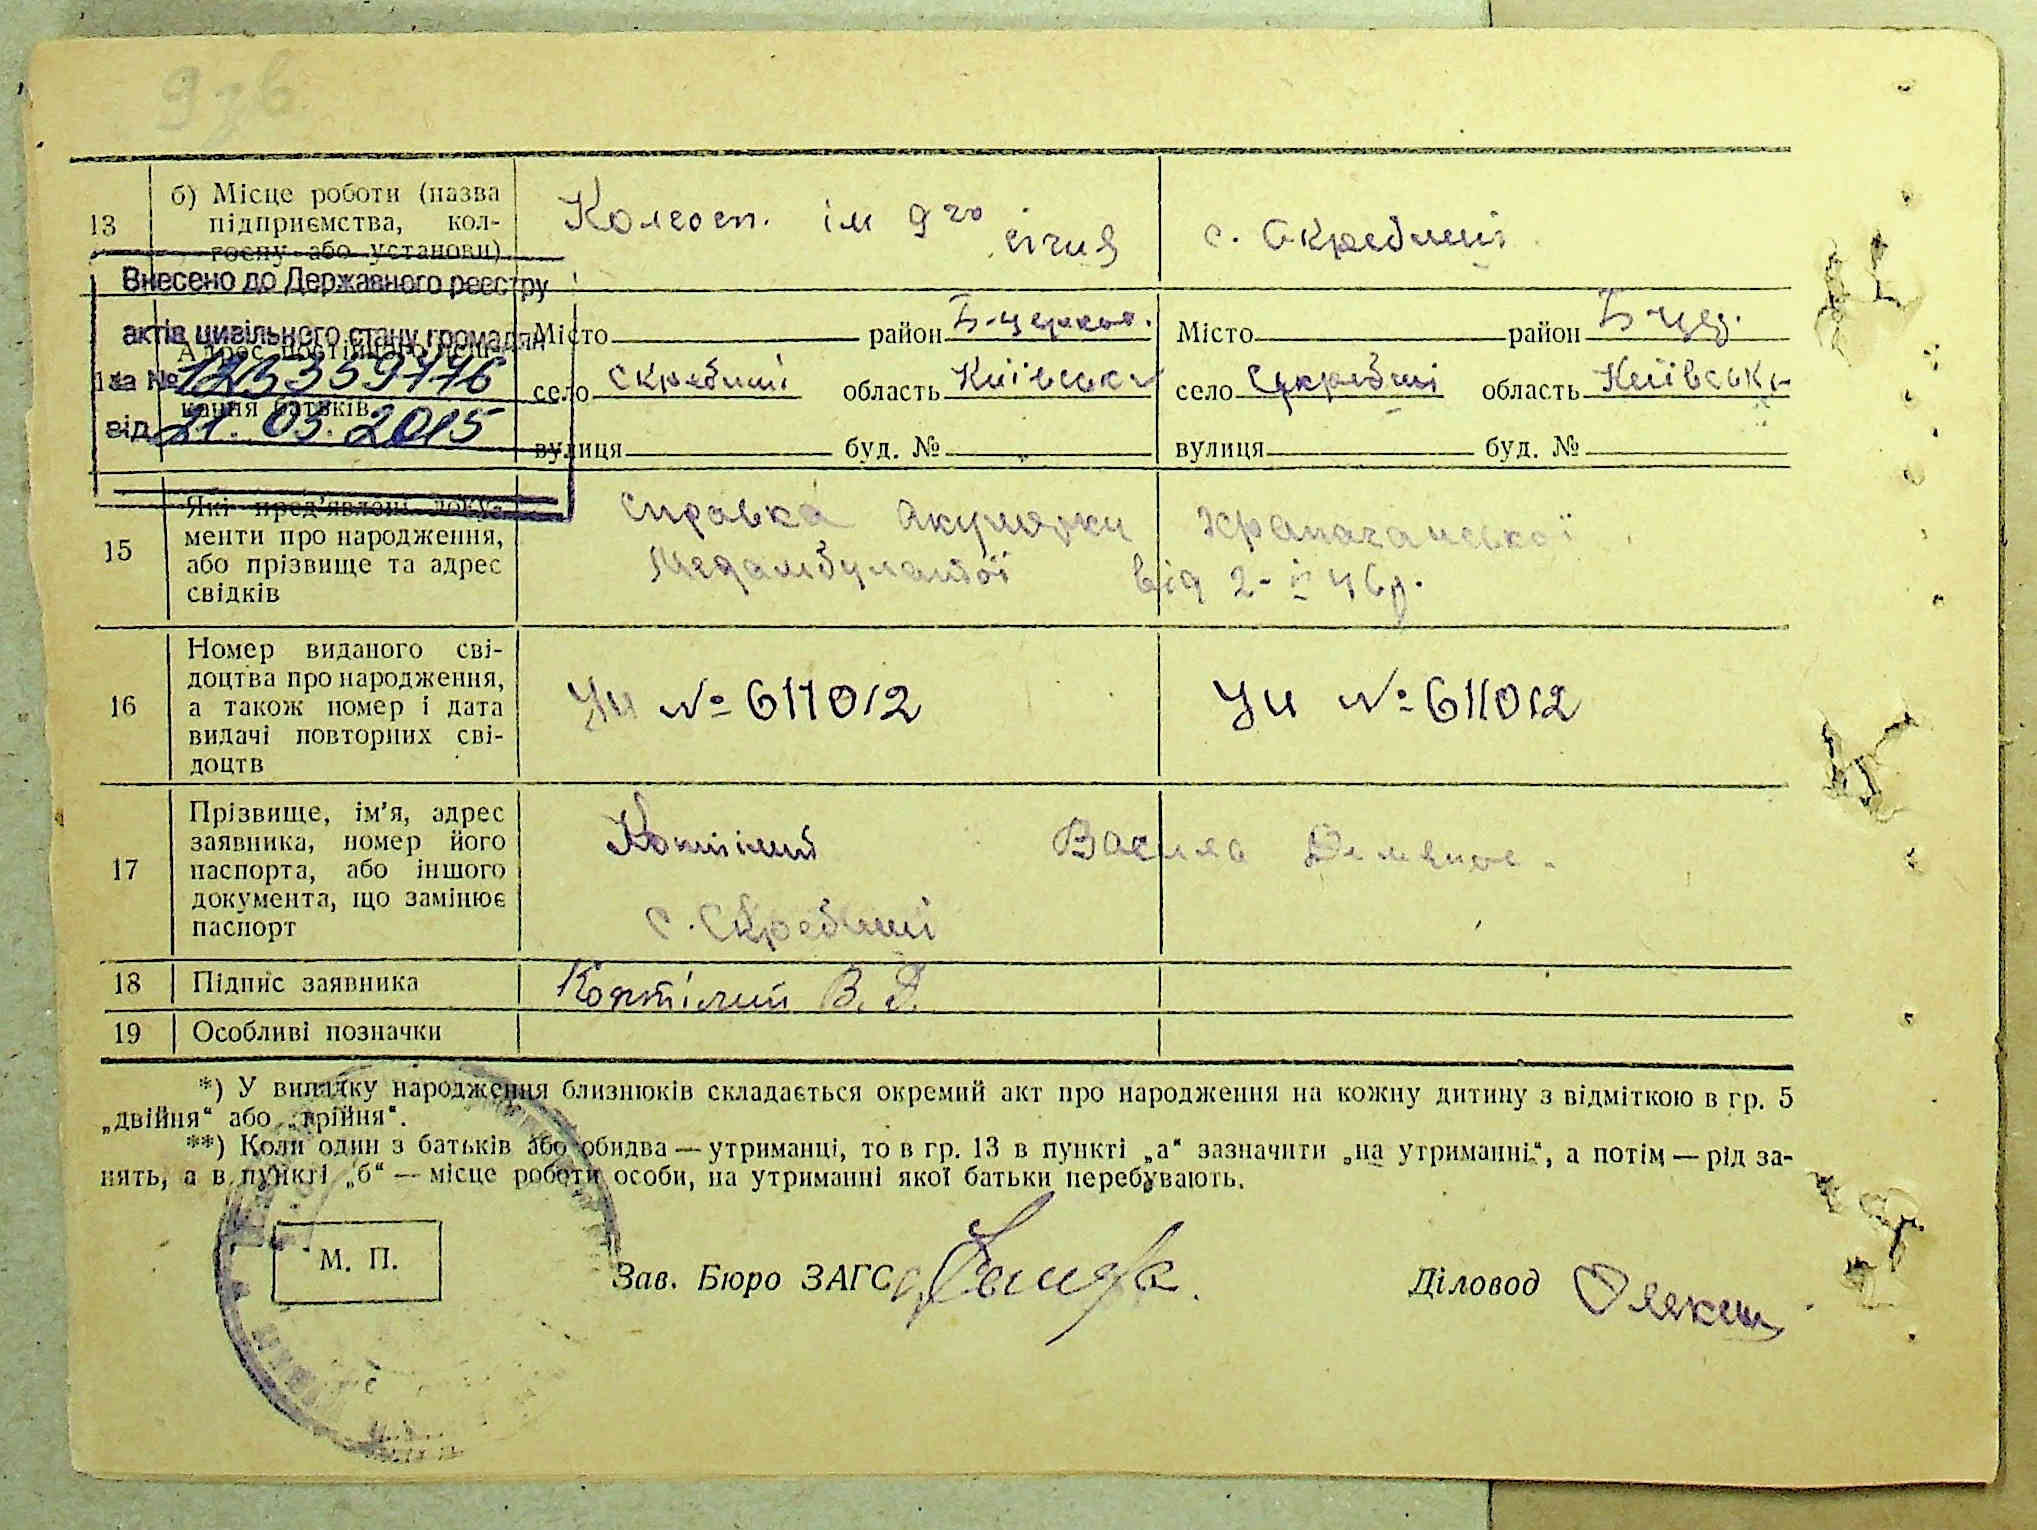 9зв
13 б) Місце роботи (назва підприємства, кол-
госпу або установи)
Колгосп. ім 9го січня
с. Скребиші
Внесено до Державного реєстру
актів цивільного стану громадян
за № 123359776
від 21.03.2015
Адрес постійного
вання батьків
Місто район Б-церков. Місто район Б церк.
село Скребиші область Київська село Скребиші область Київськ
вулиця буд. № вулиця буд. №
15 Які пред'явлені доку-
менти про народження,
або прізвище та адрес
свідків
Справка Акушерки
від 2- 46р.
16 Номер виданого сві-
доцтва про народження,
а також номер і дата
видачі повторних сві-
доцтв
УИ № 611012 УИ № 611012
17 Прізвище, ім'я, адрес
заявника, номер його
паспорта, або іншого
документа, що замінює
паспорт
Василь
с. Скребиші
18 Підпис заявника В. Д.
19 Особливі позначки
*) У випадку народження близнюків складається окремий акт про народження на кожну дитину з відміткою в гр. 5
„двійня“ або „трійня“.
**) Коли один з батьків або обидва — утриманці, то в гр. 13 в пункті „а“ зазначити „на утриманні“, а потім — рід за-
нять, а в пункті „б“ — місце роботи особи, на утриманні якої батьки перебувають.
М. П.
Зав. Бюро ЗАГС Діловод